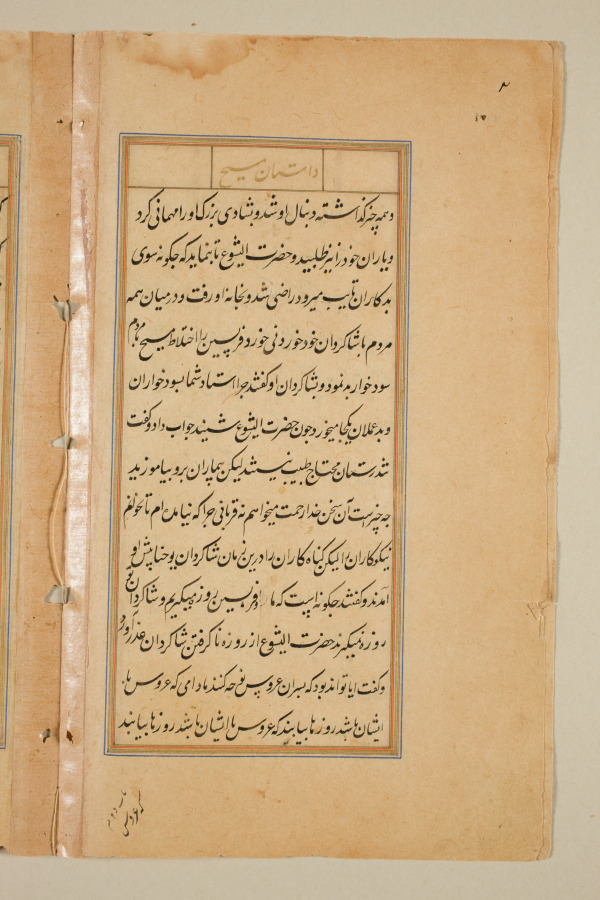 ۱۷
داستان مسیح
و همه چیز گذاشته دنبال او شد و بشادی بزرک او را مهمانی کرد
و یاران خود را نیز طلبید و حضرت الیشوع تا بنماید که چکونه سوی
بدکاران تایب میرود راضی شد و بخانه او رفت و در میان همه
مردم با شاکردان خود خوردنی خورد فریسین را اختلاط مسیح با مردم
سودخوار بد نمود و بشاکردان او کفتند چرا استاد شما بسودخواران
و بدعملان یکجا میخورد چون حضرت الیشوع شنید جواب داد و کفت
تندرستان محتاج طبیب نیستند لیکن بیماران بروید بیاموزید
چه چیز است آن سخن خدا رحمت میخواهم نه قربانی چرا که نیامده‌ام تا بخوانم
نیکوکاران را لیکن کناه کاران را درین زمان شاکردان یوحنا پیش او
آمدند و کفتند چکونه است که ما و فریسین روزه میکیریم و شاکردان تو
روزه نمیکیرند حضرت الیشوع از روزه ناکرفتن شاکردان عذر آورد
و کفت ایا تواند بود که پسران عروس نوحه کنند مادامی که عروس با
ایشان باشد روزها بیایند که عروس با ایشان باشد روزها بیایند
که عروس